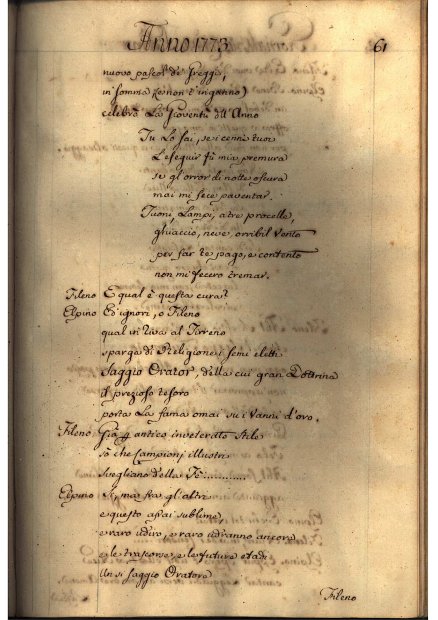 Anno 1773
61
nuovo pascol di Greggi,
in somma (se non t'inganno)
celebra La Gioventù dell'Anno
Tu Lo sai, se i cenni tuoi
L'eseguir fù mia premura
se gl'orror di notte oscura
mai mi fece paventar.
Tuoni, Lampi, atre procelle,
ghiaccio, neve, orribil Vento
per far te pago, e contento
non mi fecero tremar.
Fileno E qual è questa cura?
Elpino Ed ignori, o Fileno
qual in riva al Tirreno
sparga di Religione i semi eletti
saggio Orator, della cui gran Dottrina
il prezioso tesoro
porta La fama omai su i Vanni d'oro.
Fileno Già p antico inveterato stile
sò che Campioni illustri
scegliano della Fè..........
Elpino Sì, ma fra gl'altri
e questo assai sublime,
e raro udiro, e raro udiranno ancora
e le trascorse, e le future etadi
Un sì saggio Oratore
Fileno